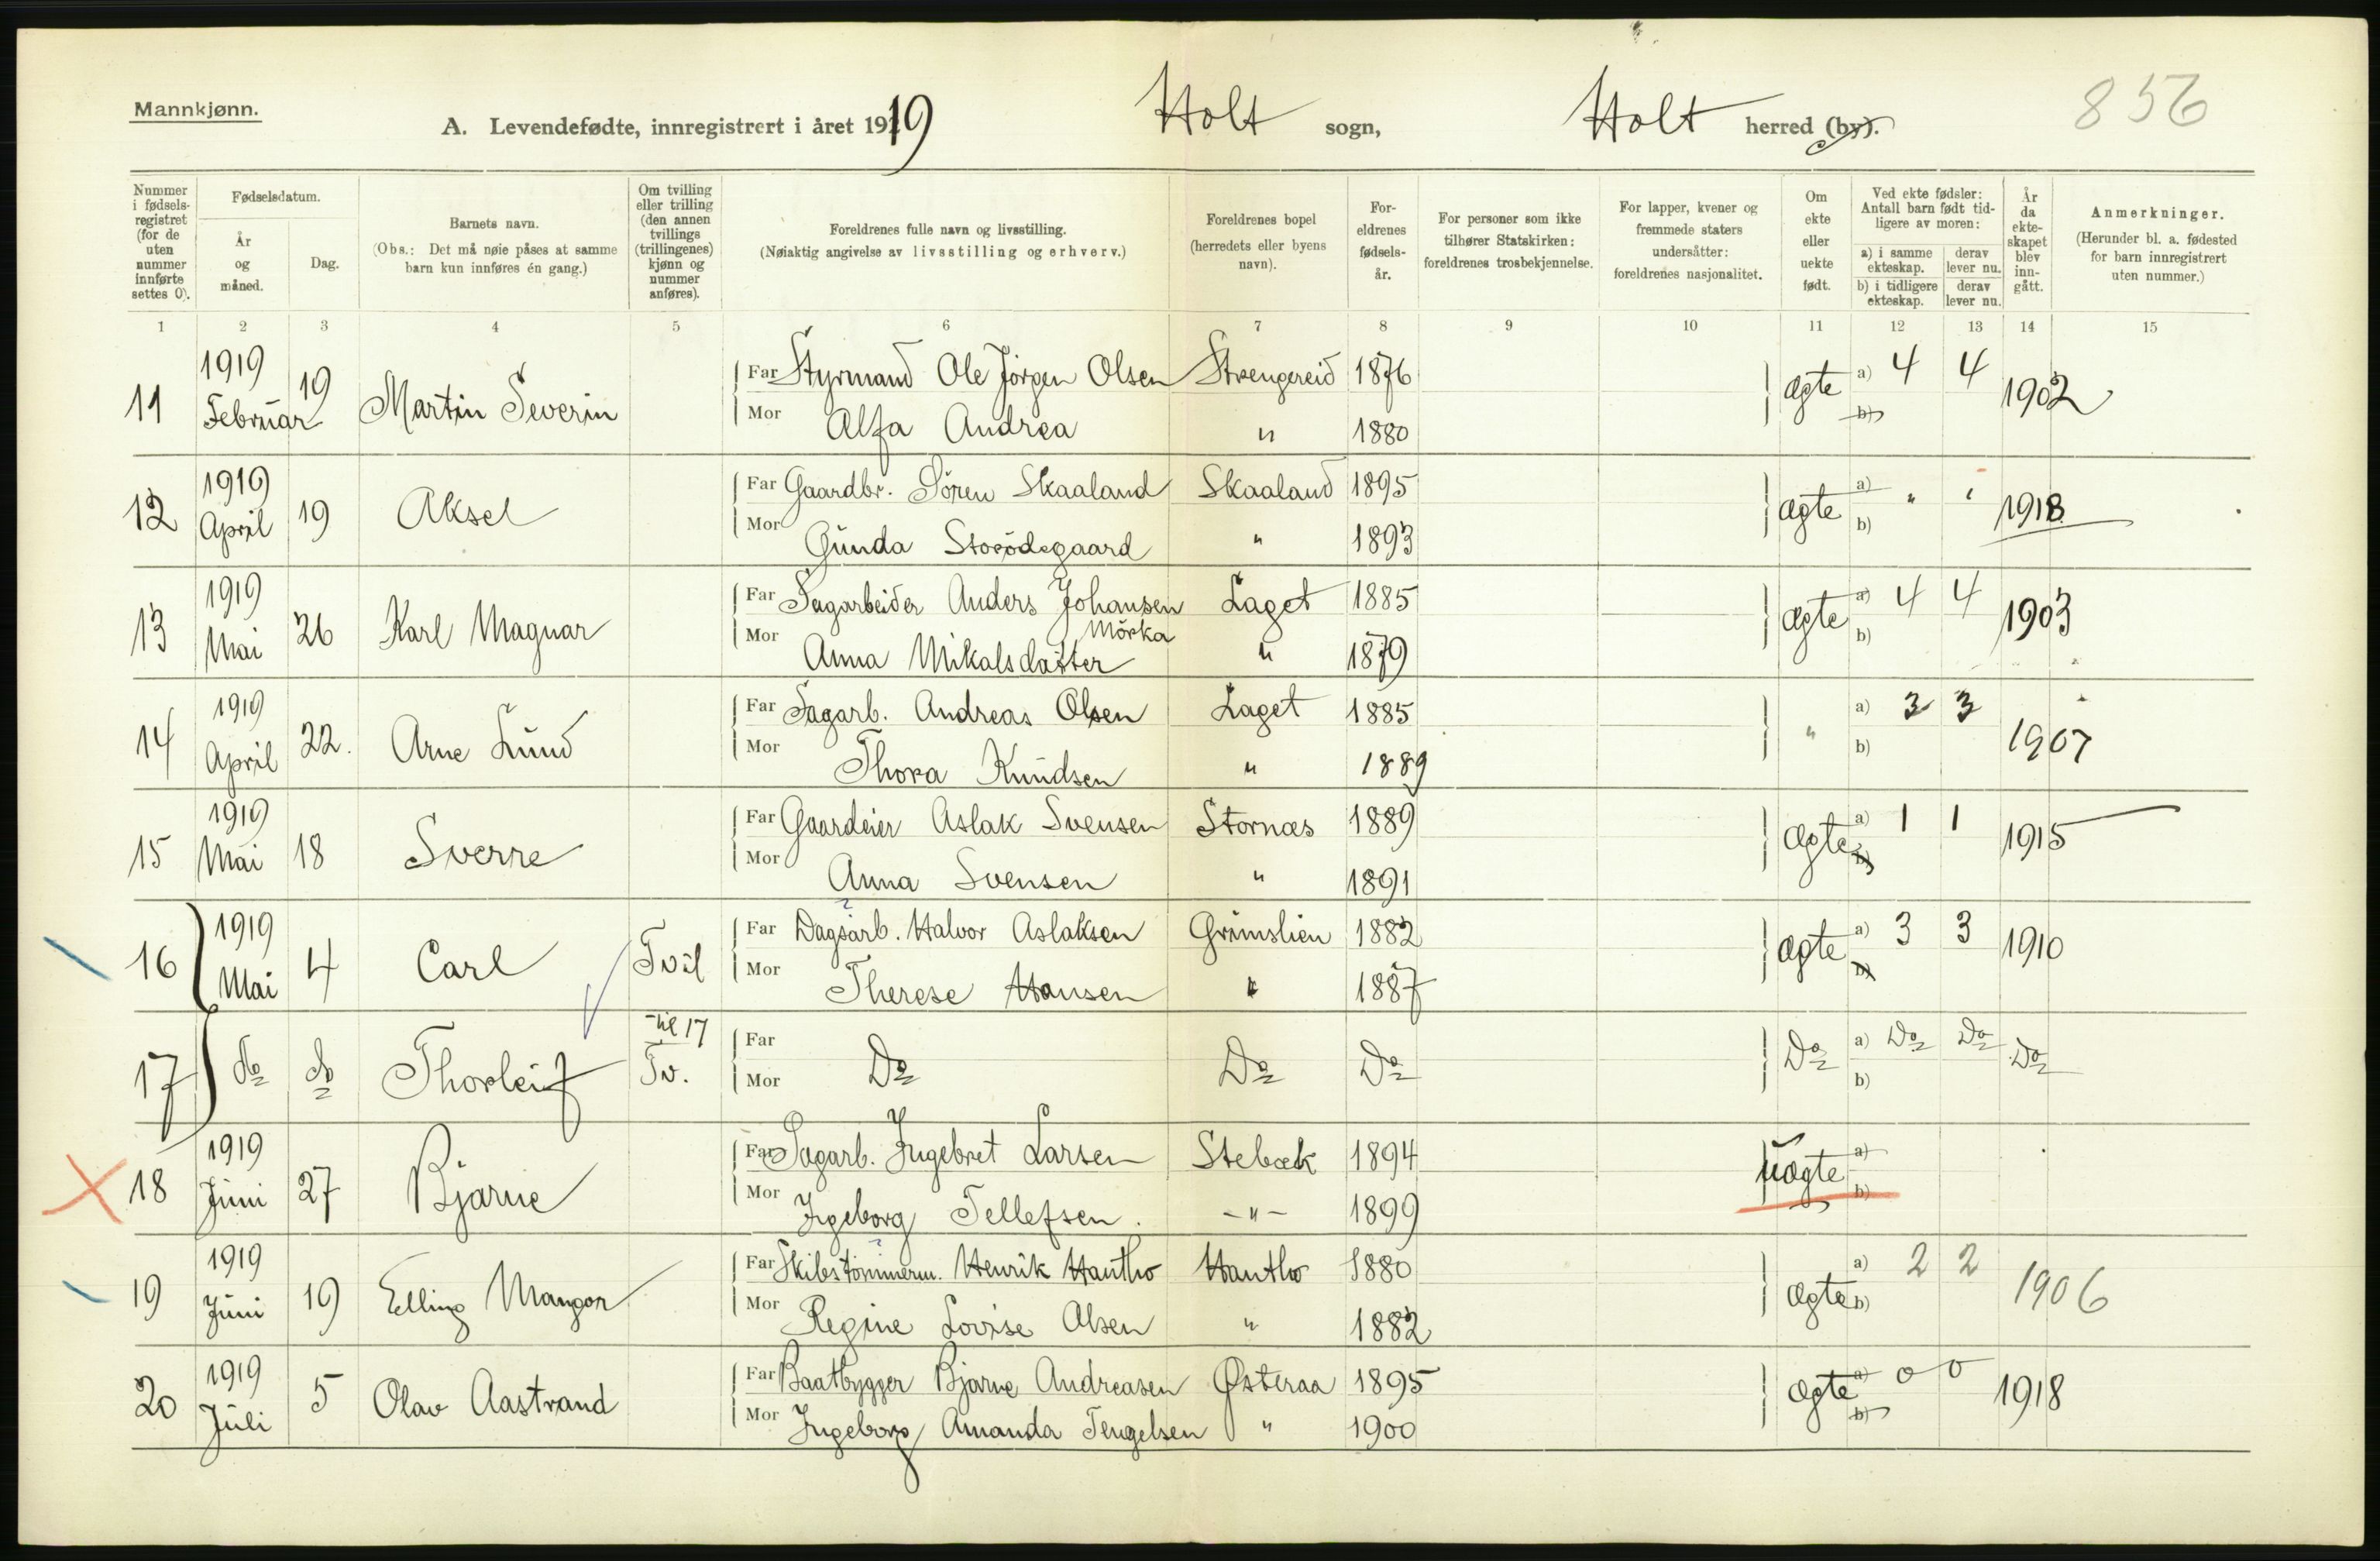 Mannkjønn.
A. Levendefødte, innregistrert i året 1919 Holt sogn, Holt herred (by). 856
Nummer i fødselsregistret (for de uten nummer innførte settes 0).
Fødselsdatum.
År og måned.
Dag.
Barnets navn.
(Obs.: Det må nøie påses at samme barn kun innføres én gang.)
Om tvilling eller trilling (den annen tvillings (trillingenes) kjønn og nummer anføres).
Foreldrenes fulle navn og livsstilling.
(Nøiaktig angivelse av livsstilling og erhverv.)
Foreldrenes bopel (herredets eller byens navn).
Foreldrenes fødselsår.
For personer som ikke tilhører Statskirken: foreldrenes trosbekjennelse.
For lapper, kvener og fremmede staters undersåtter: foreldrenes nasjonalitet.
Om ekte eller uekte født.
Ved ekte fødsler: Antall barn født tidligere av moren:
a) i samme ekteskap. derav lever nu.
b) i tidligere ekteskap. derav lever nu.
År da ekteskapet blev inngått.
Anmerkninger.
(Herunder bl. a. fødested for barn innregistrert uten nummer.)
1 2 3 4 5 6 7 8 9 10 11 12 13 14 15
11 1919 Februar 19 Martin Severin Far Styrmand Ole Jørgen Olsen Strengereid 1876 ægte a) 4 4 1902
Mor Alfa Andrea " 1880 b)
12 1919 April 19 Aksel Far Gaardbr. Sören Skaaland Skaaland 1895 ægte a) " " 1918
Mor Gunda Storödegaard " 1893 b)
13 1919 Mai 26 Karl Magnar Far Sagarbeider Anders Johansen Mörka Laget 1885 ægte a) 4 4 1903
Mor Anna Mikalsdatter " 1879 b)
14 1919 April 22. Arne Lund Far Sagarb. Andreas Olsen Laget 1885 " a) 3 3 1907
Mor Thora Knudsen " 1889 b)
15 1919 Mai 18 Sverre Far Gaardeier Aslak Svensen Stornæs 1889 ægte a) 1 1 1915
Mor Anna Svensen " 1891 b)
16 1919 Mai 4 Carl Tvil til 17 Far Dagsarb. Halvor Aslaksen Grimslien 1882 ægte a) 3 3 1910
Mor Therese Hansen " 1887 b)
17 do do Thorleif Tv. Far Mor Do Do Do Do a) Do Do Do b)
18 1919 Juni 27 Bjarne Far Sagarb. Ingebret Larsen Stebæk 1894 uægte a)
Mor Ingeborg Tellefsen. -"- 1899 b)
19 1919 Juni 19 Elling Mangor Far Skibstömmerm. Henrik Hantho Hantho 1880 ægte a) 2 2 1906
Mor Regine Lovise Olsen " 1882 b)
20 1919 Juli 5 Olav Aastrand Far Baatbygger Bjarne Andreasen Østeraa 1895 ægte a) 0 0 1918
Mor Ingeborg Amanda Tengelsen " 1900 b)